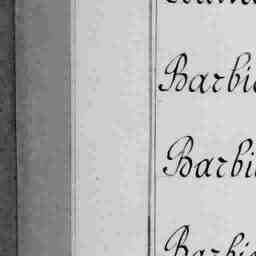 Barbie
Barbi
Barbie